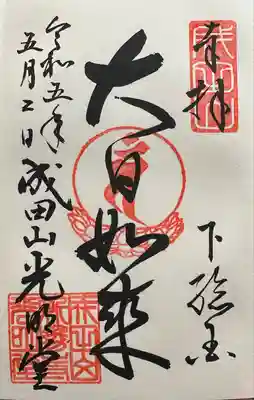 奉拝
下総国
大日如来
成田山光明堂
令和五年
五月二日